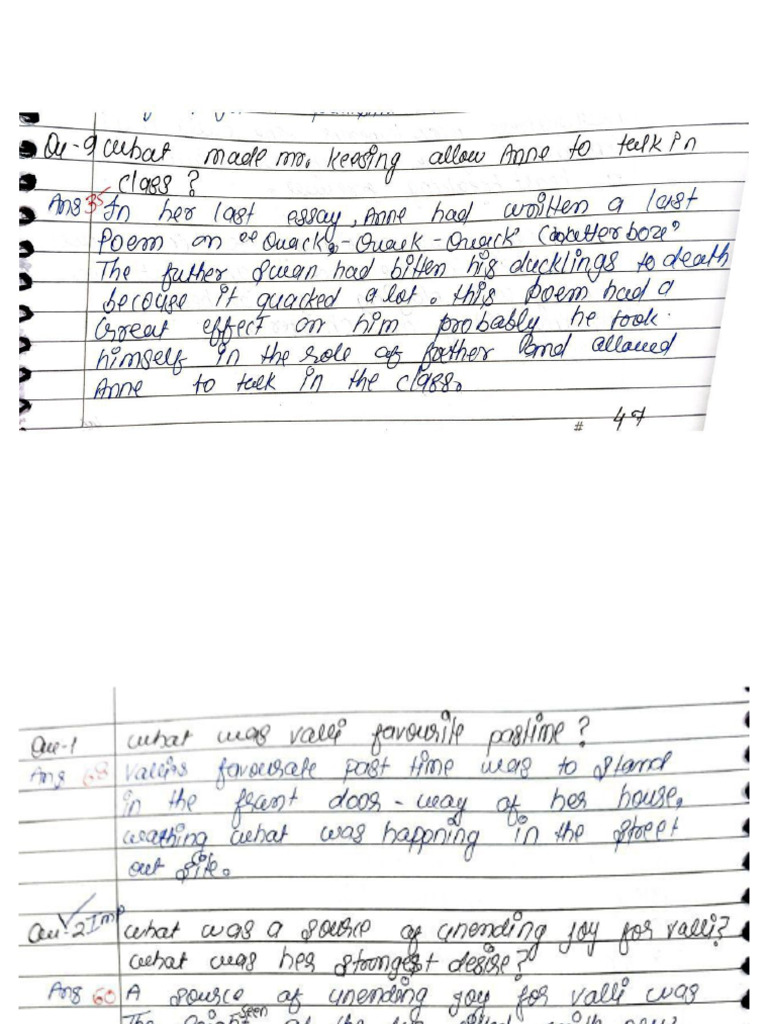 Qu-9 What made mr. keesing allow Anne to talk in
class?
Ans 35 In her last essay, Anne had written a last
Poem on "Quack, -Quack -Quack
The father swan had bitten his ducklings to death
becouse it quacked a lot. this poem had a
Great effect on him probably he took
himself in the role of father and allowed
Anne to talk in the class.
# 47
Que-1 what was valli favourite pastime?
Ans 68 Vallis favourate past time was to stand
in the frant door-way of her house,
wathing what was happning in the street
out side.
Qu. 2 Imp what was a source of unending joy for valli?
what was her strongest desire?
Ans 60 A source of unending joy for valli was
seen